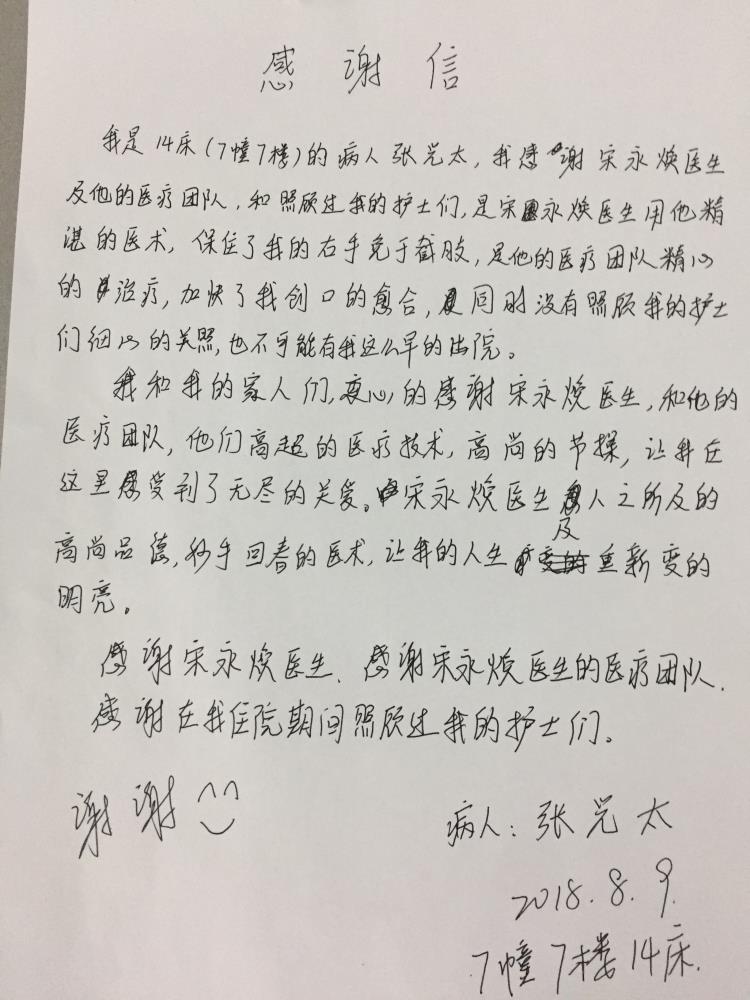 感谢信
我是14床(7幢7楼)的病人张光太，我感谢宋永焕医生
及他的医疗团队，和照顾过我的护士们，是宋永焕医生用他精
湛的医术，保住了我的右手免于截肢，是他的医疗团队精心
的治疗，加快了我创口的愈合，同时没有照顾我的护士
们细心的关照，也不可能有我这么早的出院。
我和我的家人们，衷心的感谢宋永焕医生，和他的
医疗团队，他们高超的医疗技术，高尚的节操，让我在
这里感受到了无尽的关爱。宋永焕医生急人之所及的
高尚品德，及妙手回春的医术，让我的人生重新变的
明亮。
感谢宋永焕医生．感谢宋永焕医生的医疗团队．
感谢在我住院期间照顾过我的护士们。
谢谢
病人：张光太
2018.8.9.
7幢7楼14床.